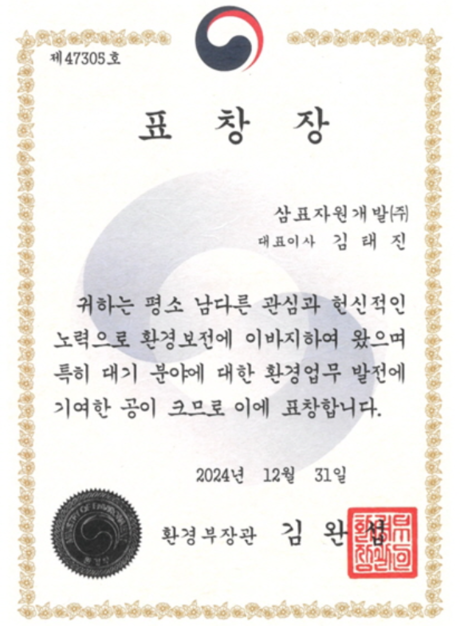 제47305호
표 창 장
삼표자원개발(주)
대표이사 김태진
귀하는 평소 남다른 관심과 헌신적인
노력으로 환경보전에 이바지하여 왔으며
특히 대기 분야에 대한 환경업무 발전에
기여한 공이 크므로 이에 표창합니다.
2024년 12월 31일
환경부장관 김완섭